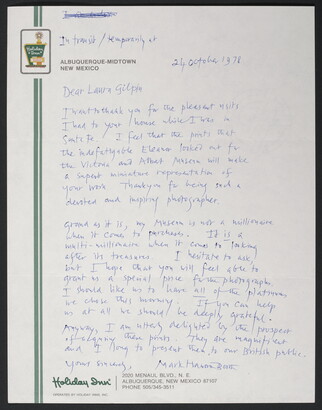 In transit / temporarily at
Holiday Inn
ALBUQUERQUE-MIDTOWN
NEW MEXICO
24 October 1978
Dear Laura Gilpin
I want to thank you for the pleasant visits
I had to your house while I was in
Santa Fe. I feel that the prints that
the indefatigable Eleanor looked out for
the Victoria and Albert Museum will make
a superb miniature representation of
your work. Thank you for being such a
devoted and inspiring photographer.
Grand as it is, my Museum is not a millionaire
when it comes to purchases. It is a
multi-millionaire when it comes to looking
after its treasures. I hesitate to ask,
but I hope that you will feel able to
grant us a special price for the photographs.
I should like us to have all of the platinums
we chose this morning. If you can help
us at all we should be deeply grateful.
Anyway, I am utterly delighted by the prospect
of these prints. They are magnificent
and I long to present them to our British public.
Yours sincerely, Mark Haworth-Booth
Holiday Inn
2020 MENAUL BLVD., N. E.
ALBUQUERQUE, NEW MEXICO 87107
PHONE 505/345-3511
OPERATED BY HOLIDAY INNS, INC.